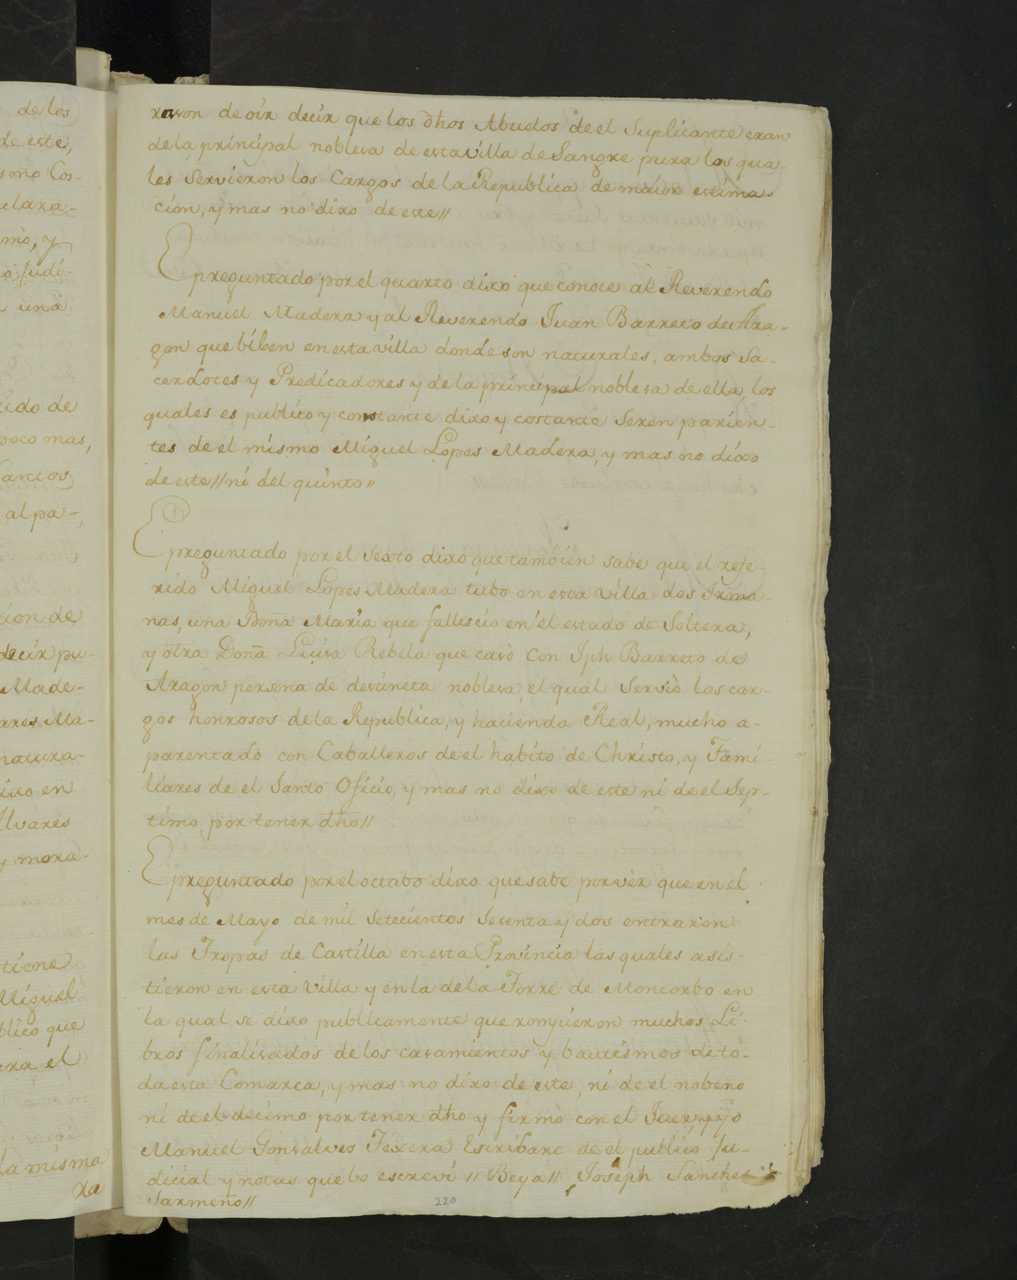 de los
de este,
smo Cos-
clara-
mo, y
o Judi-
una
cido de
poco mas,
Santos
al pa-
cion de
decir pu-
Made-
ares Ma-
natura-
dixo en
Alvares
y mora-
tiene
Miguel
blico que
era el
la misma
xa
xaron de oir decir que los dhos Abuelos de el Suplicante eran
de la principal nobleza de esta villa de Sangre pura los qua-
les Servieron los Cargos de la Republica de maior estima-
cion, y mas no dixo de este//
E preguntado por el quarto dixo que conoce al Reverendo
Manuel Madera y al Reverendo Juan Barreto de Ara-
gon que biben en esta villa donde son naturales, ambos Sa-
cerdotes y Predicadores y de la principal nobleza de ella, los
quales es publico y constante dixo y costante Seren parien-
tes de el mismo Miguel Lopes Madera, y mas no dixo
de este // ni del quinto //
E preguntado por el Sexto dixo que tambien sabe que el refe-
rido Miguel Lopes Madera tubo en esta villa dos Irma-
nas, una Doña Maria que fallescio en el estado de Soltera,
y otra Doña Luisa Rebela que casò con Jph Barreto de
Aragon persona de destincta nobleza, el qual Serviò los car-
gos honrosos de la Republica, y hacienda Real, mucho a-
parentado con Caballeros de el habito de Christo, y Fami-
liares de el Santo Oficio, y mas no dixo de este ni de el Sep-
timo por tener dho//
E preguntado por el octabo dixo que sabe por ver que en el
mes de Mayo de mil Setecientos Sesenta y dos entraron
las Tropas de Castilla en esta Provincia las quales asis-
tieron en esta Villa y en la de la Torre de Moncorbo en
la qual se dixo publicamente que ronpieron muchos Li-
bros finalizados de los casamientos y bautismos de to-
da esta Comarca, y mas no dixo de este, ni de el nobeno
ni de el decimo por tener dho y firmò con el Juez y yo
Manuel Gonsalves Texera Escribano de el publico Ju-
dicial y notas que lo escrevi // Beya // Joseph Sanches
Sarmeño //
220